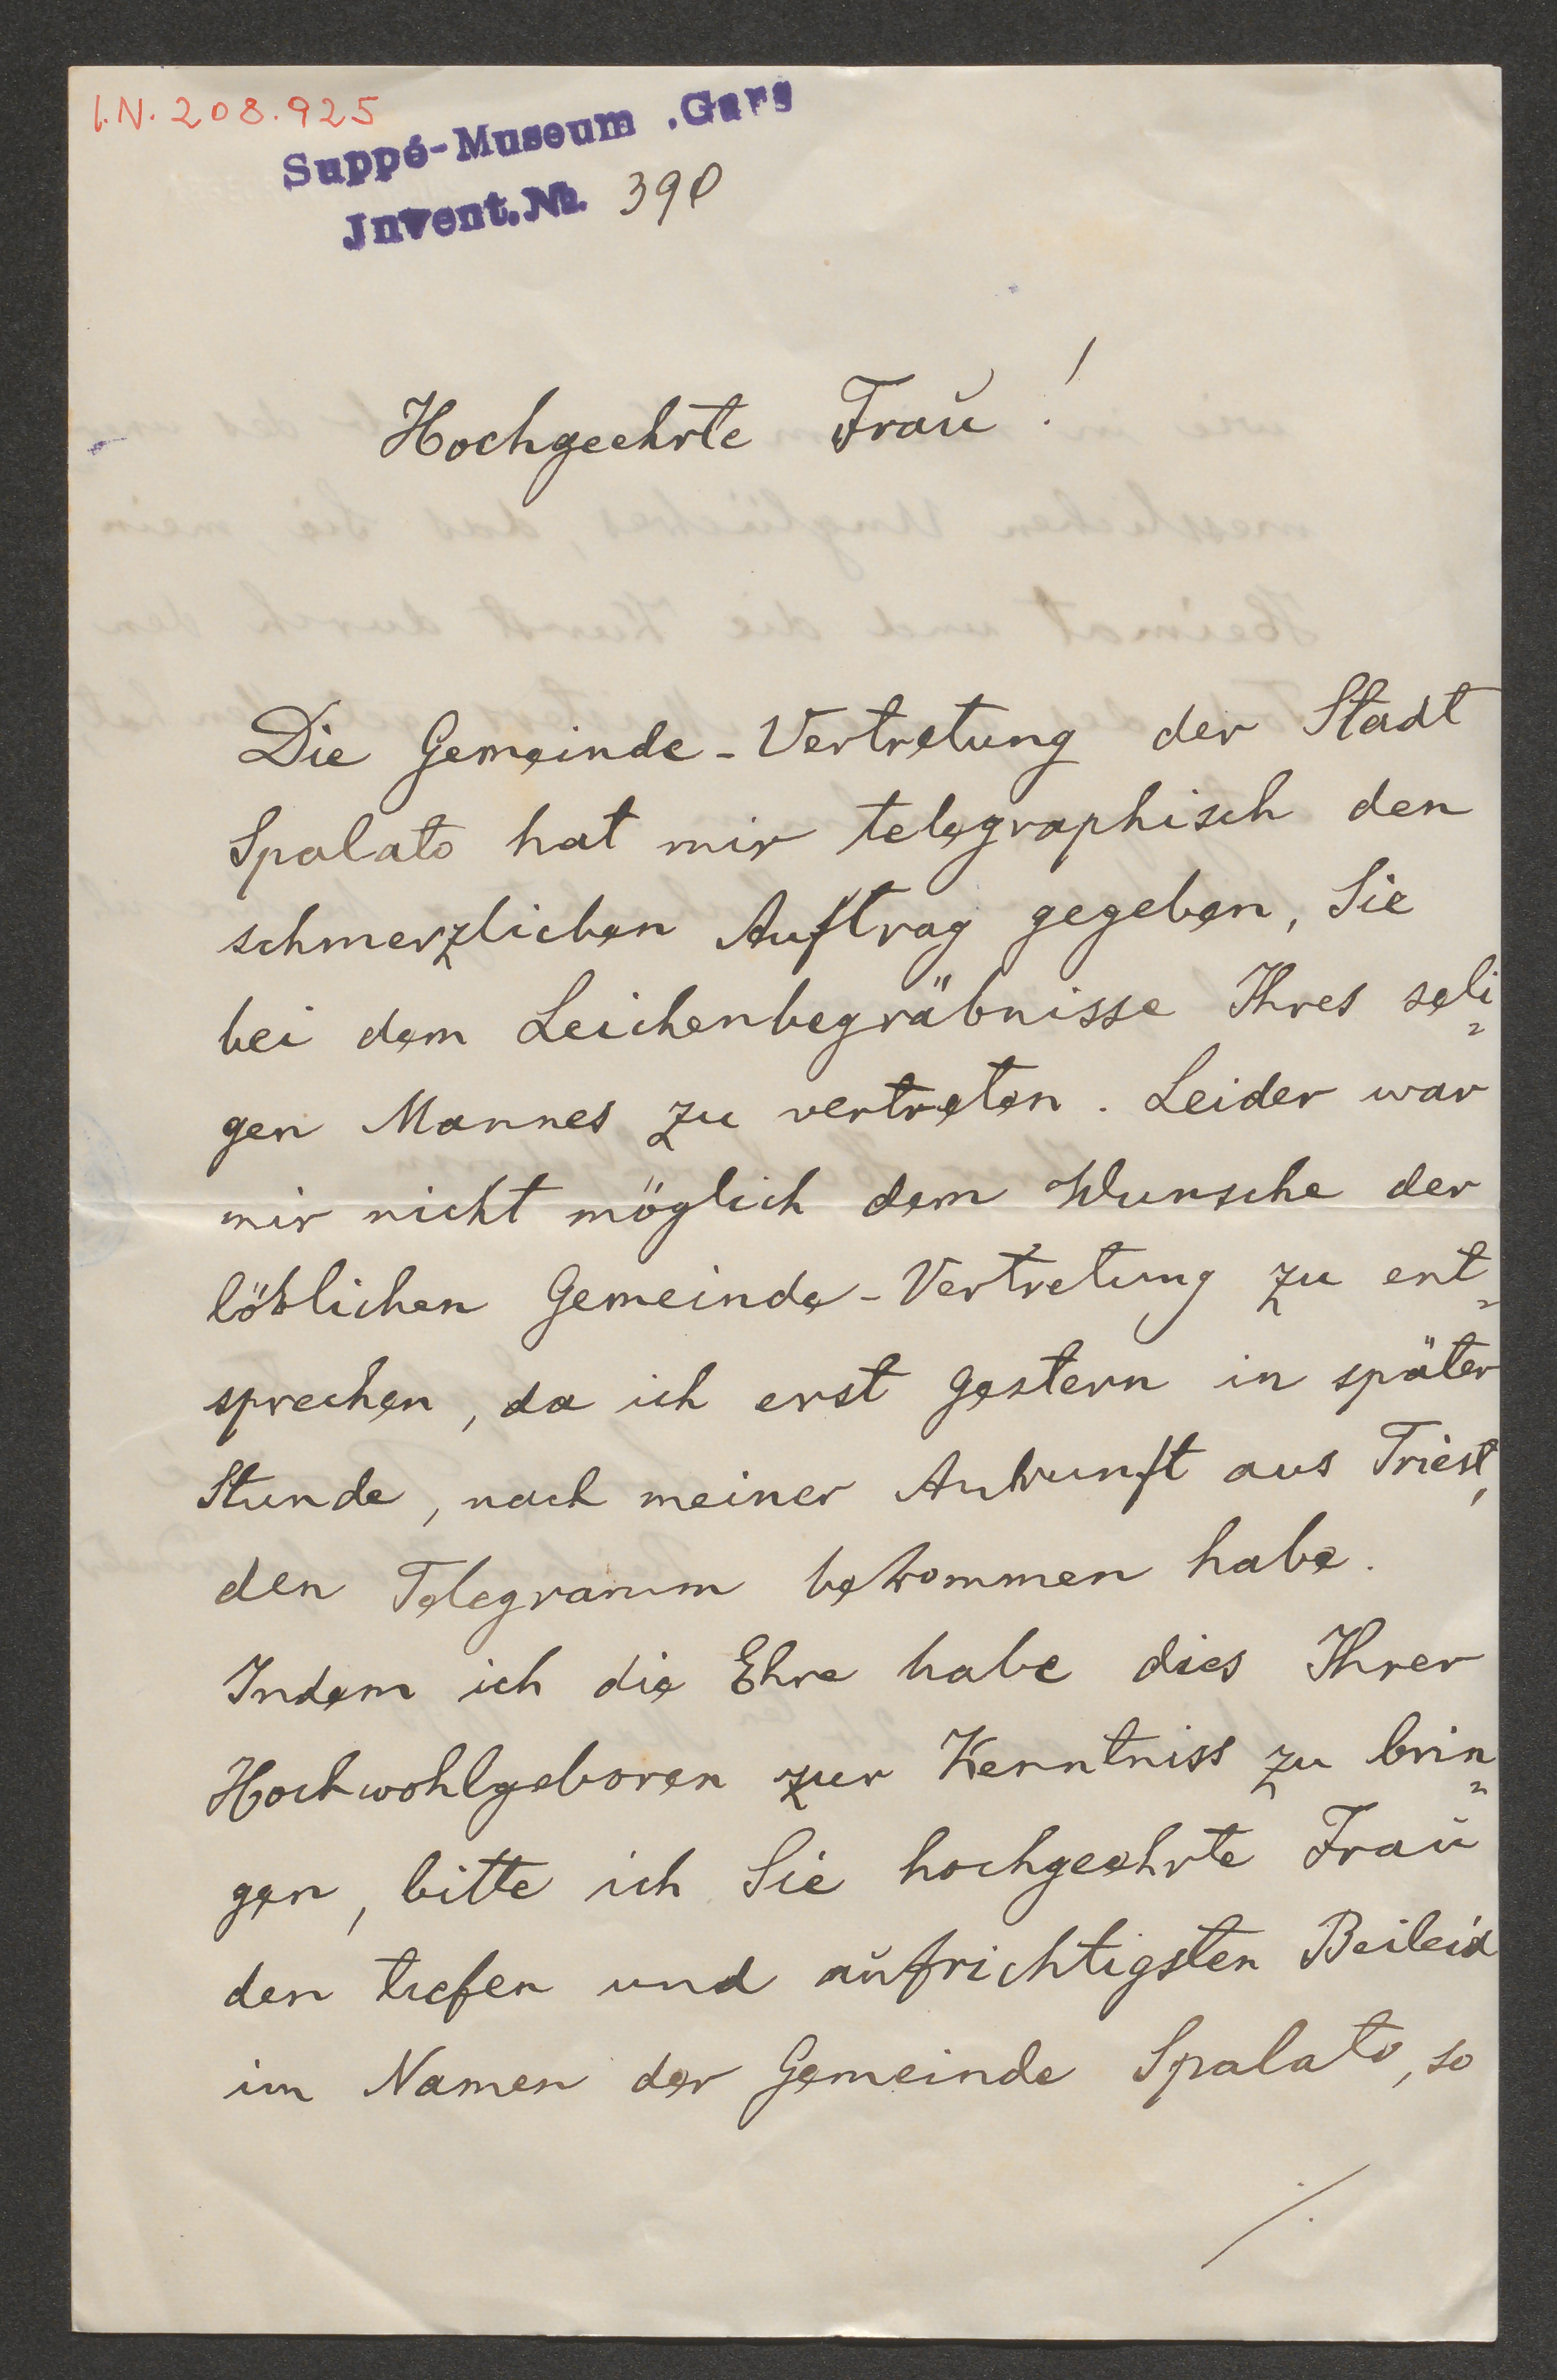 I.N. 208.925
Suppé-Museum .Gars
Jnvent.№. 390
Hochgeehrte Fraŭ!
Die Gemeinde-Vertretung der Stadt
Spalato hat mir telegraphisch den
schmerzlichen Auftrag gegeben, Sie
bei dem Leichenbegräbnisse Ihres seli=
gen Mannes zu vertreten. Leider war
mir nicht möglich dem Wunsche der
löblichen Gemeinde-Vertretung zu ent=
sprechen, da ich erst gestern in später
Stunde, nach meiner Ankunft aus Triest,
den Telegramm bekommen habe.
Indem ich die Ehre habe dies Ihrer
Hochwohlgeboren zur Kenntniss zu brin=
gen, bitte ich Sie hochgeehrte Fraŭ
den tiefen und aŭfrichtigsten Beileid
im Namen der Gemeinde Spalato, so
./.